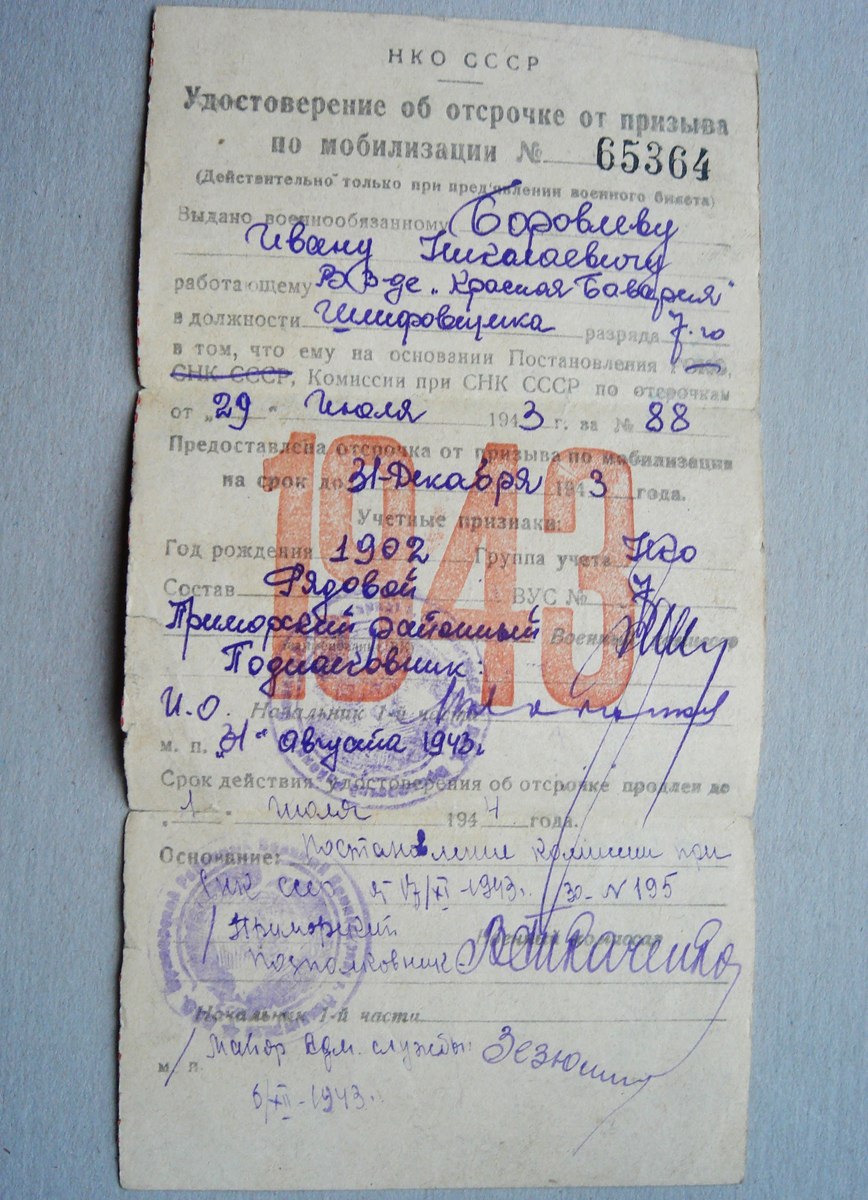 НКО СССР
Удостоверение об отсрочке от призыва
по мобилизации № 65364
(Действительно только при предъявлении военного билета)
Выдано военнообязанному Боровлеву
Ивану Николаевичу
работающему В З-де „Красная Бавария"
в должности Шлифовщика разряда 7-го
в том, что ему на основании Постановления ГОКО,
СНК СССР, Комиссии при СНК СССР по отсрочкам
от „29" Июля 1943 г. за № 88
Предоставлена отсрочка от призыва по мобилизации
на срок до 31-Декабря 1943 года.
1943
Учетные признаки:
Год рождения 1902 Группа учета НКО
Состав Рядовой ВУС № 7
Приморский районный Военный комиссар
Подполковник:
И.О. Начальник 1-й части
м. п. „31" Августа 1943г.
Срок действия удостоверения об отсрочке продлен до
„1" Июля 1944 года.
Основание: Постановление комиссии при
СНК СССР от 17/XI-1943г. за-N195
Приморский Военный комиссар
Подполковник Ткаченко
Начальник 1-й части
м. п. Майор адм. службы:
6/XII-1943г.